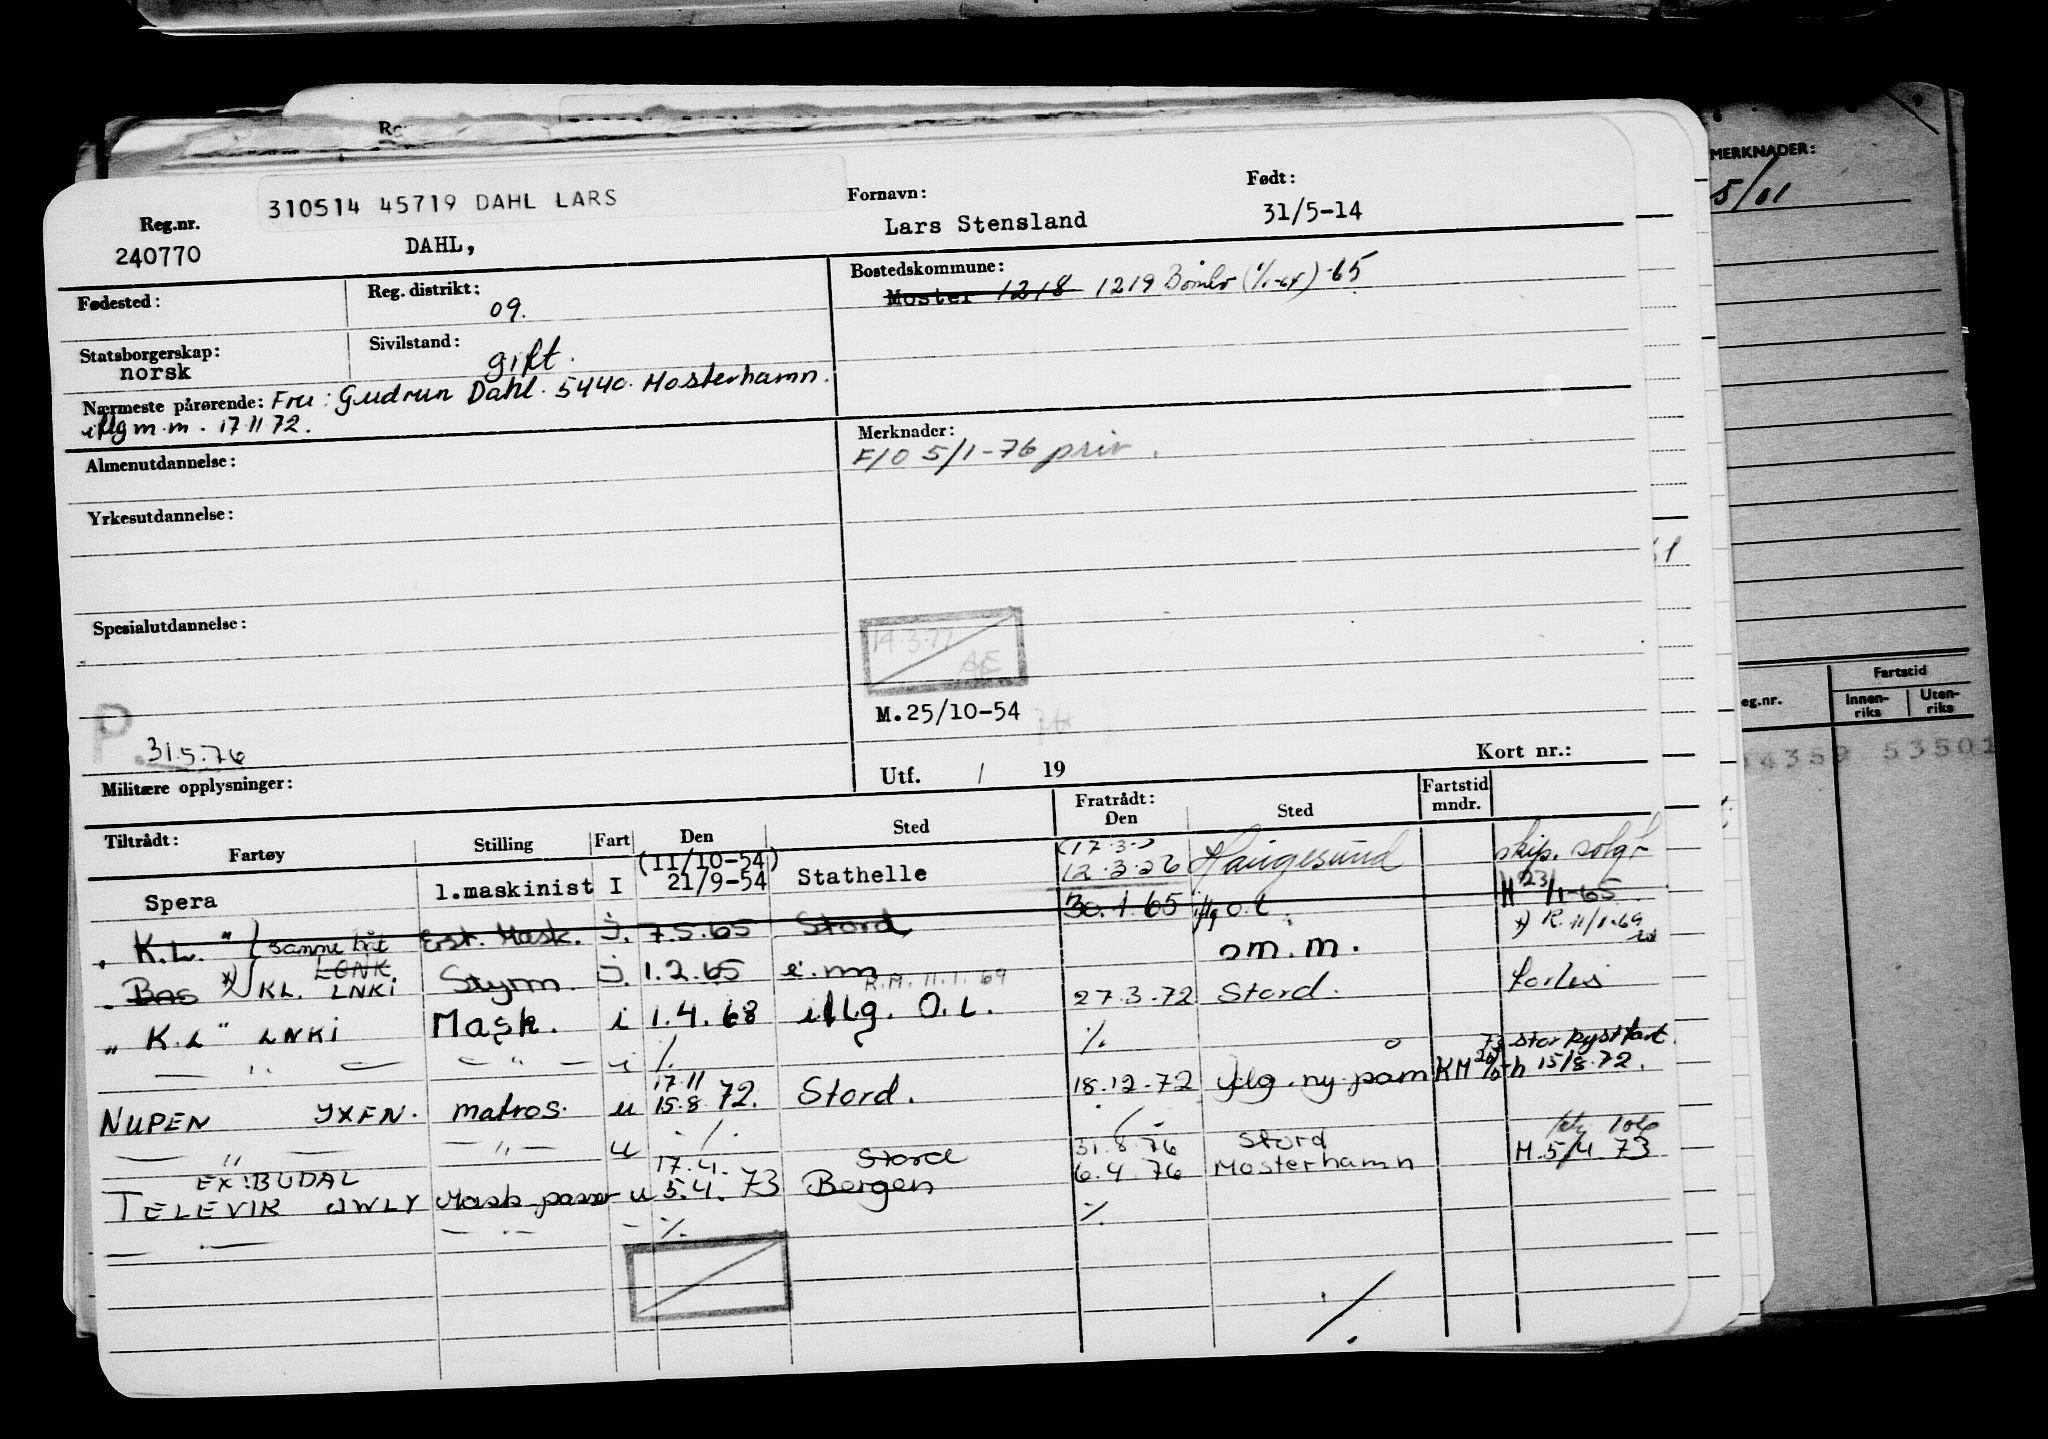 MERKNADER:
5/61
310514 45719 DAHL LARS
Reg.nr.
240770
DAHL,
Fornavn:
Lars Stensland
Født:
31/5-14
Fødested:
Reg. distrikt:
09.
Bostedskommune:
Moster 1218 1219 Bømlo (1/1-64) -65
Statsborgerskap:
norsk
Sivilstand:
gift.
Nærmeste pårørende: Fru: Gudrun Dahl. 5440. Mosterhamn.
iflg m.m. 17 11 72.
Almenutdannelse:
Merknader:
F/O 5/1-76 priv.
Yrkesutdannelse:
Spesialutdannelse:
14.3.77
AE
P.
31.5.76
M.25/10-54
Militære opplysninger:
Utf. / 19
Kort nr.:
eg.nr.
Fartstid
Innen-
riks
Uten-
riks
Tiltrådt:
Fartøy
Stilling
Fart
Den
Sted
Fratrådt:
Den
Sted
Fartstid
mndr.
Spera 1.maskinist I (11/10-54) 21/9-54 Stathelle 12.3.56 Haugesund skip. solgt
"K.L." (samme båt Erst. Mask. i. 7.5.65 Stord 30.1.65 iflg o.l. M 23/1-65
Bas *) KL. LNKI Styrm. i. 1.2.65 e.m. R.M. 11.1.69 o m.m. *) R. 11/1-69
"K.L" LNKI Mask. i 1.4.68 iflg. O.L. 27.3.72 Stord. forlis
— " — — " — i ./. ./.
NUPEN JXFN. matros. u 17.11 15.8.72. Stord. 18.12.72 iflg. ny påm KM 15/8.72. stor kystfart
— " — — " — u ./. ./.
EX: BUDAL
TELEVIK JWLY Mask.passer u 17.4. 5.4. 73 Stord Bergen 31.8.76 6.4.76 Stord Mosterhamn M.5/4 73
— " — — " — ./. ./.